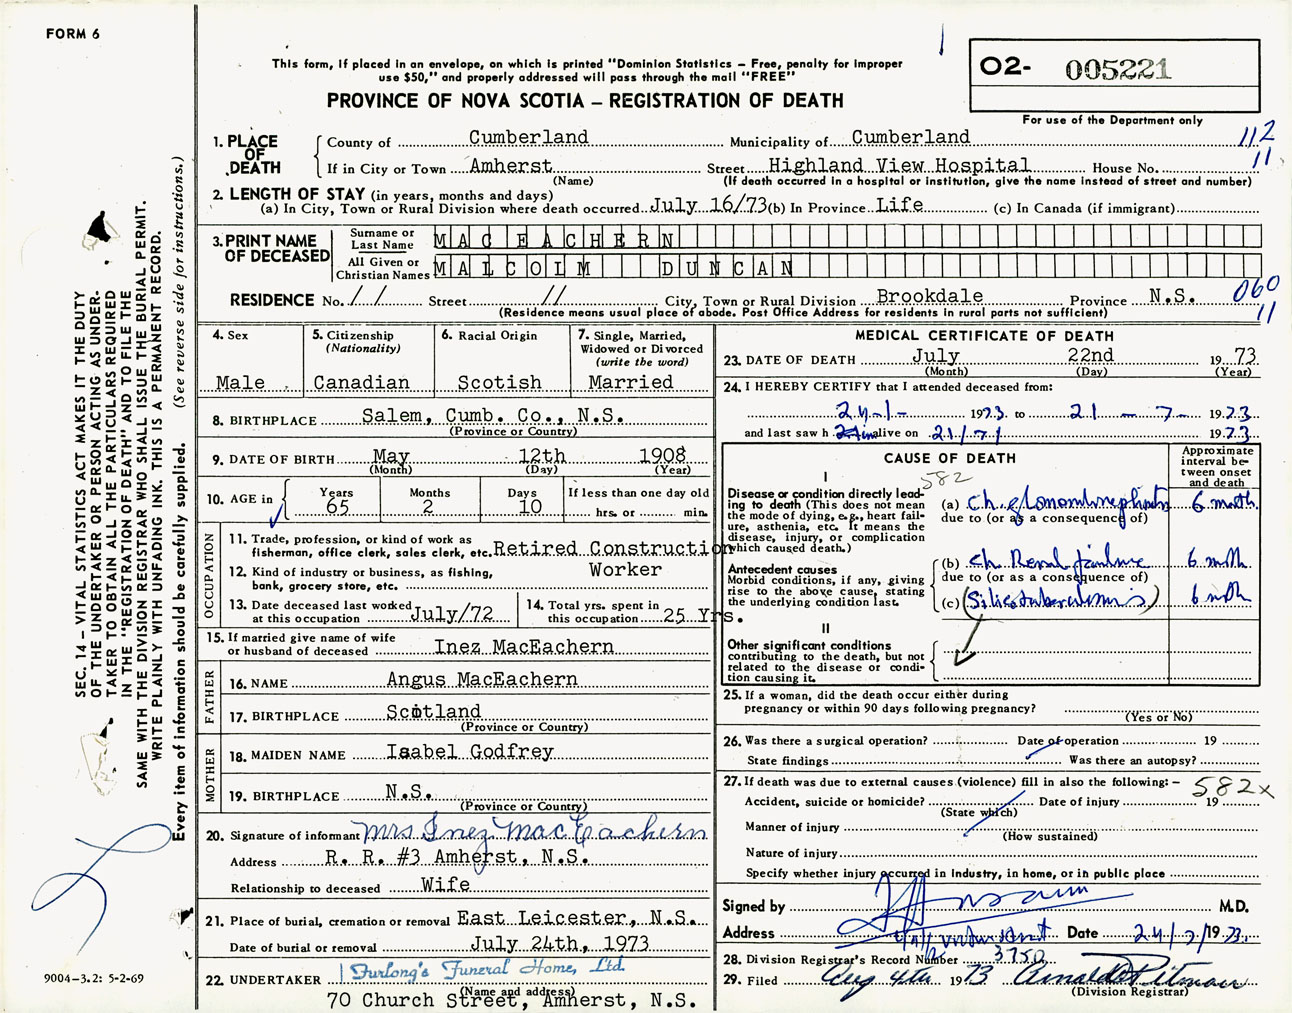 FORM 6
This form, if placed in an envelope, on which is printed "Dominion Statistics – Free, penalty for improper
use $50," and properly addressed will pass through the mail "FREE"
PROVINCE OF NOVA SCOTIA – REGISTRATION OF DEATH
O2- 005221
For use of the Department only
1. PLACE OF DEATH
County of Cumberland Municipality of Cumberland
112
11
If in City or Town Amherst Street Highland View Hospital House No.
(Name) (If death occurred in a hospital or institution, give the name instead of street and number)
2. LENGTH OF STAY (in years, months and days)
(a) In City, Town or Rural Division where death occurred July 16/73 (b) In Province Life (c) In Canada (if immigrant)
3. PRINT NAME OF DECEASED
Surname or Last Name MAC EACHERN
All Given or Christian Names MALCOLM DUNCAN
RESIDENCE No. // Street // City, Town or Rural Division Brookdale Province N.S.
060
11
(Residence means usual place of abode. Post Office Address for residents in rural parts not sufficient)
4. Sex
Male
5. Citizenship
(Nationality)
Canadian
6. Racial Origin
Scotish
7. Single, Married,
Widowed or Divorced
(write the word)
Married
8. BIRTHPLACE Salem, Cumb. Co., N.S.
(Province or Country)
9. DATE OF BIRTH May 12th 1908
(Month) (Day) (Year)
10. AGE in
Years 65
Months 2
Days 10
If less than one day old
hrs. or min.
OCCUPATION
11. Trade, profession, or kind of work as
fisherman, office clerk, sales clerk, etc. Retired Construction
12. Kind of industry or business, as fishing, Worker
bank, grocery store, etc.
13. Date deceased last worked
at this occupation July/72
14. Total yrs. spent in
this occupation 25 Yrs.
15. If married give name of wife
or husband of deceased Inez MacEachern
FATHER
16. NAME Angus MacEachern
17. BIRTHPLACE Scotland
(Province or Country)
MOTHER
18. MAIDEN NAME Isabel Godfrey
19. BIRTHPLACE N.S.
(Province or Country)
20. Signature of informant Mrs Inez MacEachern
Address R. R. #3 Amherst, N.S.
Relationship to deceased Wife
21. Place of burial, cremation or removal East Leicester, N.S.
Date of burial or removal July 24th, 1973
22. UNDERTAKER Furlong's Funeral Home, Ltd.
(Name and address)
70 Church Street, Amherst, N.S.
MEDICAL CERTIFICATE OF DEATH
23. DATE OF DEATH July 22nd 1973
(Month) (Day) (Year)
24. I HEREBY CERTIFY that I attended deceased from:
24-1- 1973 to 21-7- 1973
and last saw h alive on 1973
CAUSE OF DEATH
Approximate
interval be-
tween onset
and death
582
I
Disease or condition directly lead-
ing to death (This does not mean
the mode of dying, e.g., heart fail-
ure, asthenia, etc. It means the
disease, injury, or complication
which caused death.)
(a) Ch. glomerulonephritis 6 month
due to (or as a consequence of)
Antecedent causes
Morbid conditions, if any, giving
rise to the above cause, stating
the underlying condition last.
(b) Ch. Renal failure 6 mth
due to (or as a consequence of)
(c) (Silicotuberculosis) 6 mth
II
Other significant conditions
contributing to the death, but not
related to the disease or condi-
tion causing it.
25. If a woman, did the death occur either during
pregnancy or within 90 days following pregnancy?
(Yes or No)
26. Was there a surgical operation? Date of operation 19
State findings Was there an autopsy?
27. If death was due to external causes (violence) fill in also the following: –
582x
Accident, suicide or homicide? Date of injury 19
(State which)
Manner of injury
(How sustained)
Nature of injury
Specify whether injury occurred in industry, in home, or in public place
Signed by M.D.
Address Date 24/7/1973
28. Division Registrar's Record Number 3750
29. Filed Aug 4th 1973 Pitman
(Division Registrar)
SEC. 14 – VITAL STATISTICS ACT MAKES IT THE DUTY
OF THE UNDERTAKER OR PERSON ACTING AS UNDER-
TAKER TO OBTAIN ALL THE PARTICULARS REQUIRED
IN THE "REGISTRATION OF DEATH" AND TO FILE THE
SAME WITH THE DIVISION REGISTRAR WHO SHALL ISSUE THE BURIAL PERMIT.
WRITE PLAINLY WITH UNFADING INK. THIS IS A PERMANENT RECORD.
Every item of information should be carefully supplied. (See reverse side for instructions.)
9004–3.2: 5-2-69